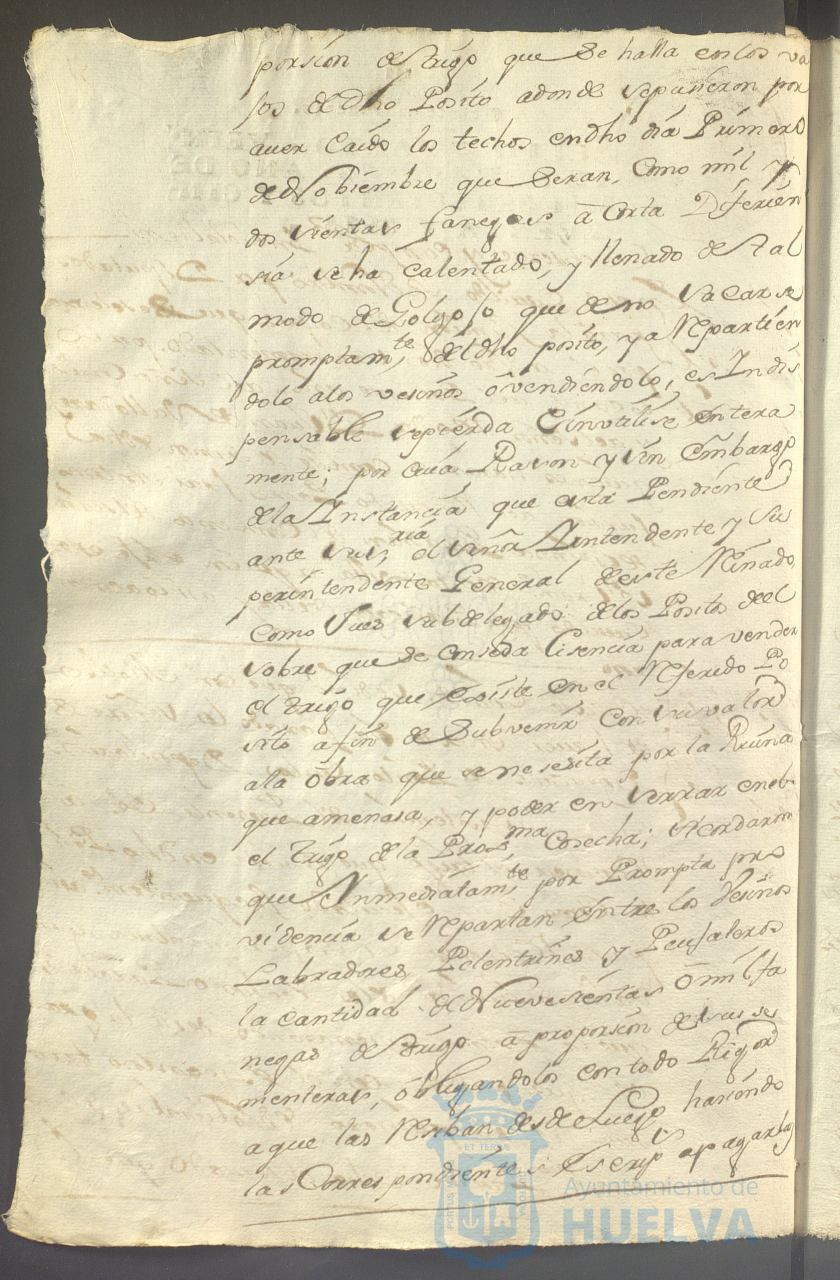 porsion de trigo que se halla en los va
sos de dho Posito adonde se pusieron por
auer Caido los techos en dho dia Primero
de Nobiembre que seran, como mil y
dos sientas fanegas â Corta Diferien
sia se ha Calentado, y llenado de tal
modo de Golgojo que de no Sacarse
promptamte, del dho posito, y a Repartien
dolo alos vesinos ô vendiendolo, es Indis
pensable se pierda è inutilise entera
mente; por cuia Rason y sin embargo
de la Instancia que está Pendiente
ante su sria, el señor Intendente y Su
perintendente General de este Reinado,
como Jues subdelegado de los Positos de el
sobre que se conseda lisencia para vender
el trigo que existe en el Referido Po
sito a fin de Subvenir con su valor
ala ôbra que se nesesita por la Ruina
que amenasa, y poder en serrar en el
el trigo de la Prosma Cosecha; Acordaron
que Inmediatamte por Prompta pro
videncia se Repartan entre los Vesinos
Labradores Pelentrines y Peujaleros
la cantidad de Nuevesientas ô mil fa
negas de trigo â proporsion de sus se
menteras, obligandolos con todo Rigor
a que las Resiban desde Luego hasiendo
las Correspondientes Escrips a pagarlas
ET TERRAE
Ayuntamiento de
HUELVA